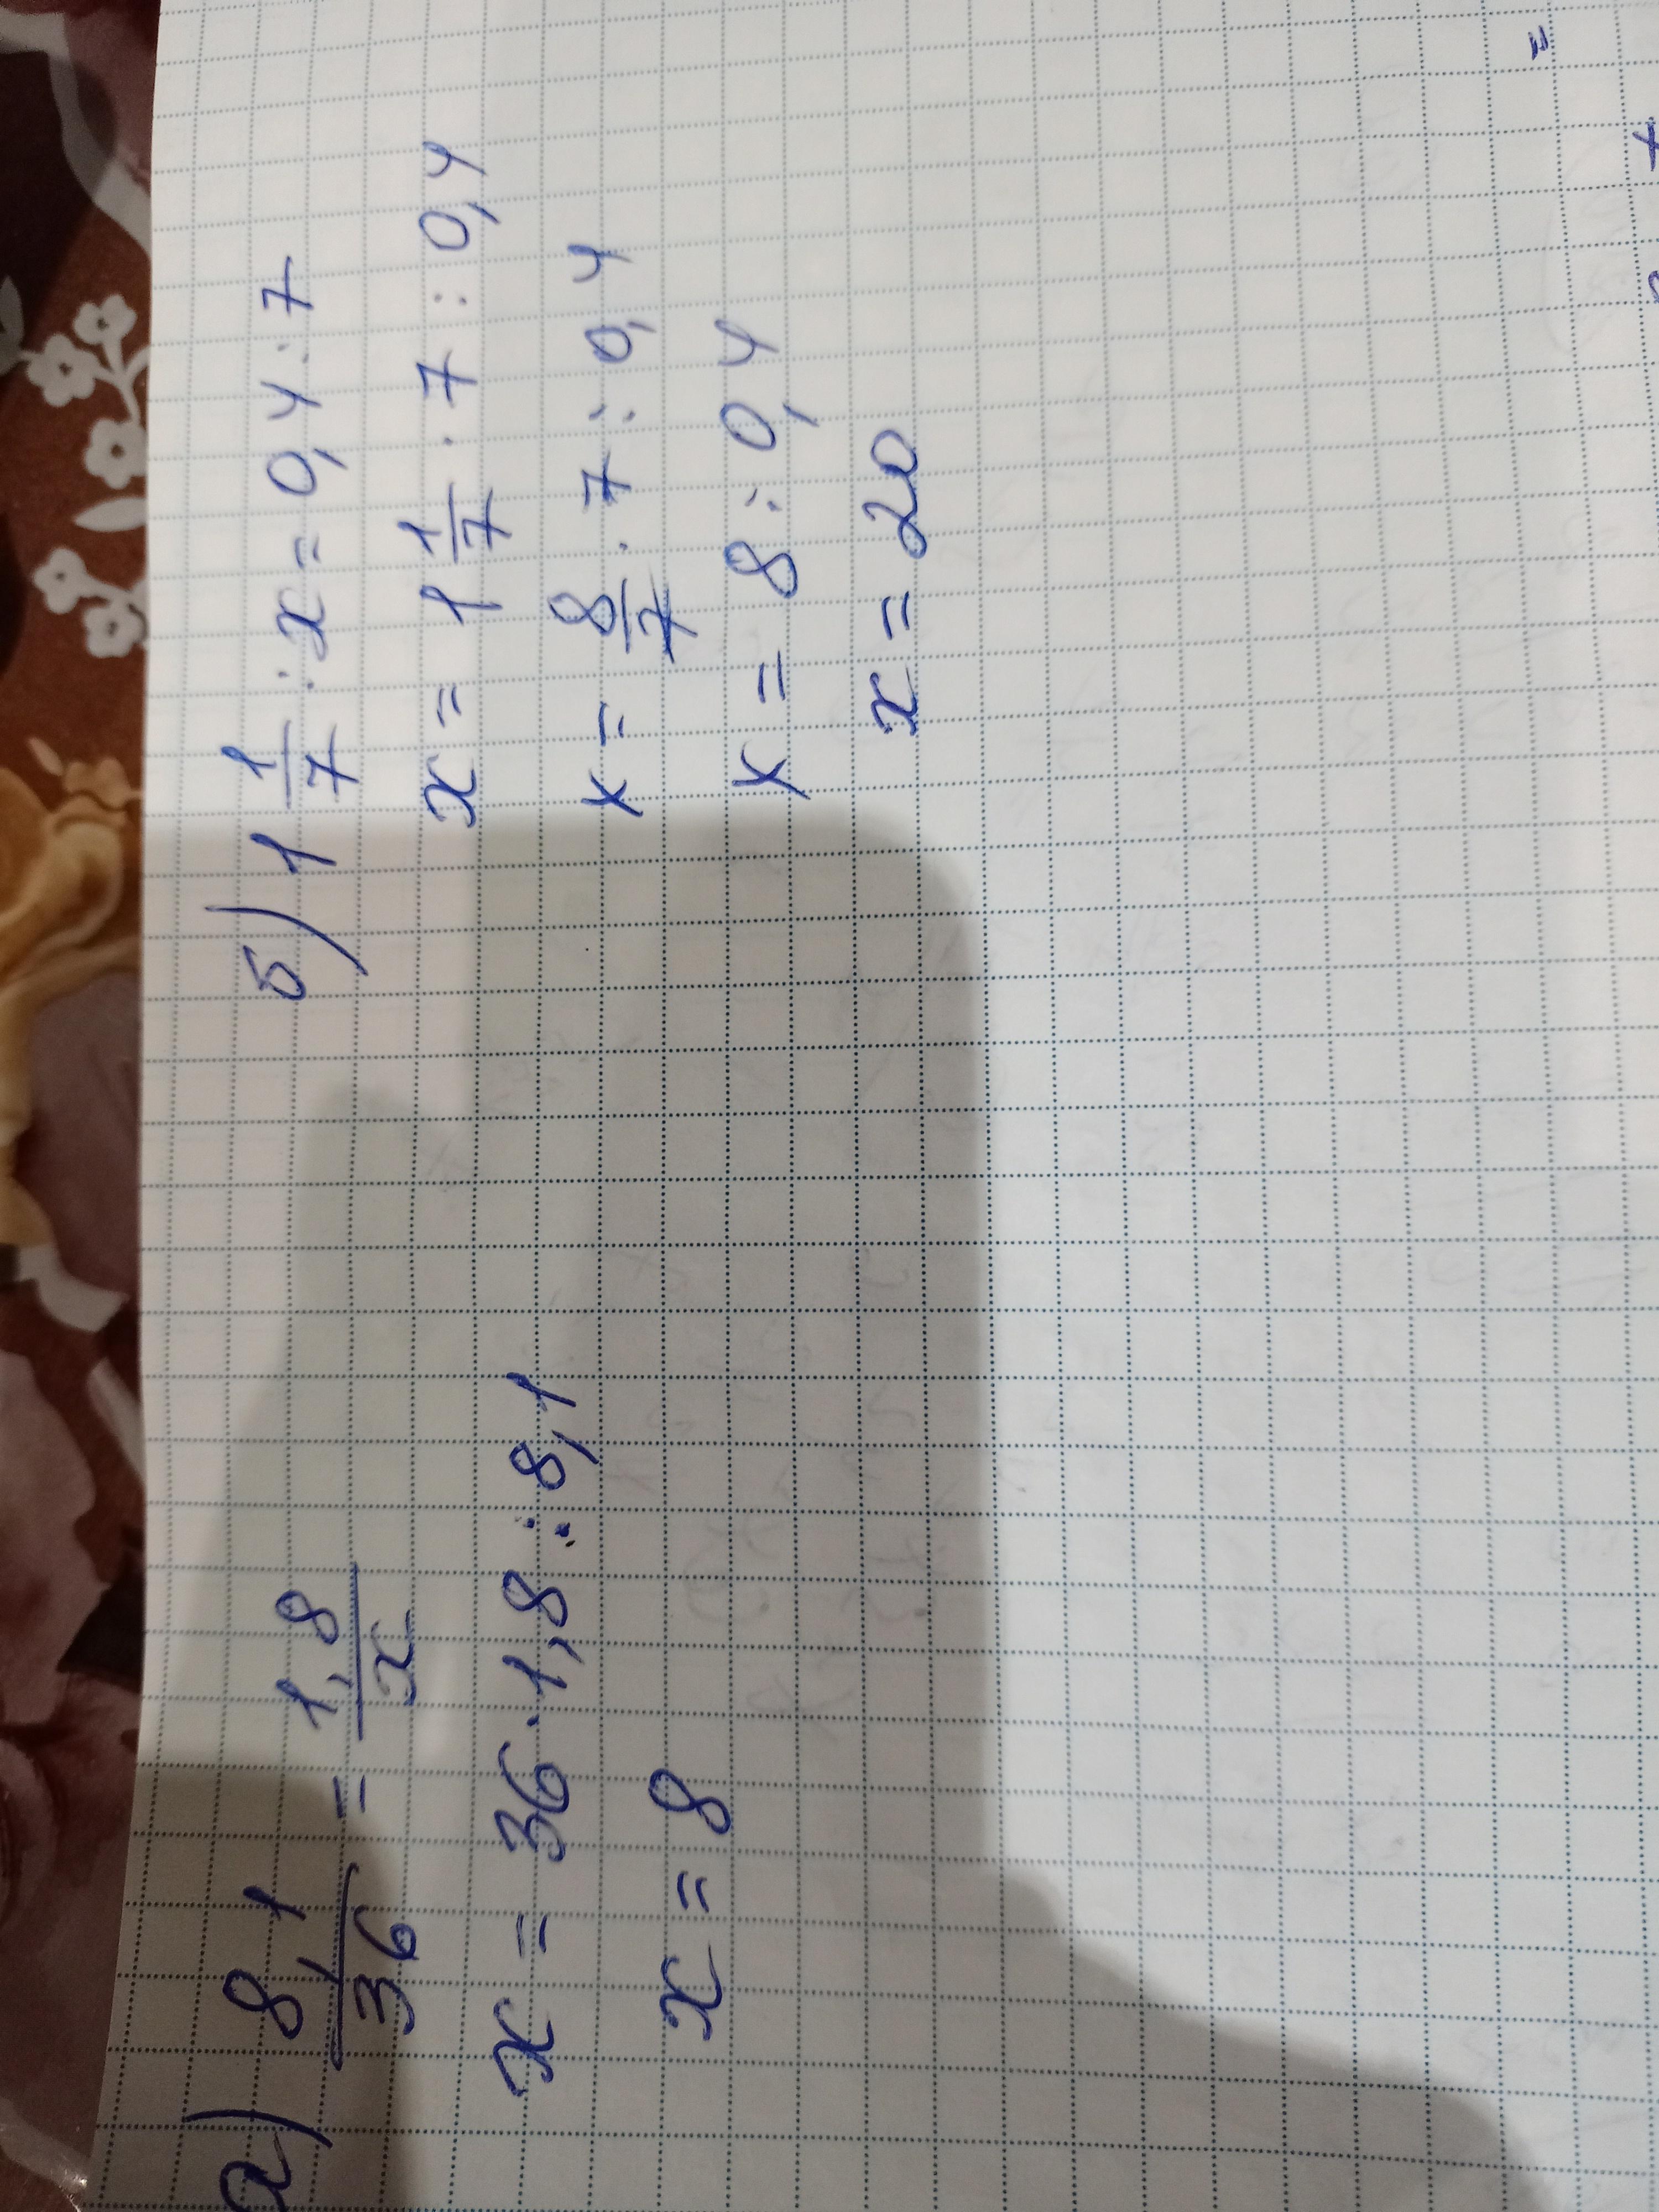 а) 8,1/36 = 1,8/x
x = 36 · 1,8 : 8,1
x = 8
б) 1 1/7 : x = 0,4 : 7
x = 1 1/7 · 7 : 0,4
x = 8/7 · 7 : 0,4
x = 8 : 0,4
x = 20